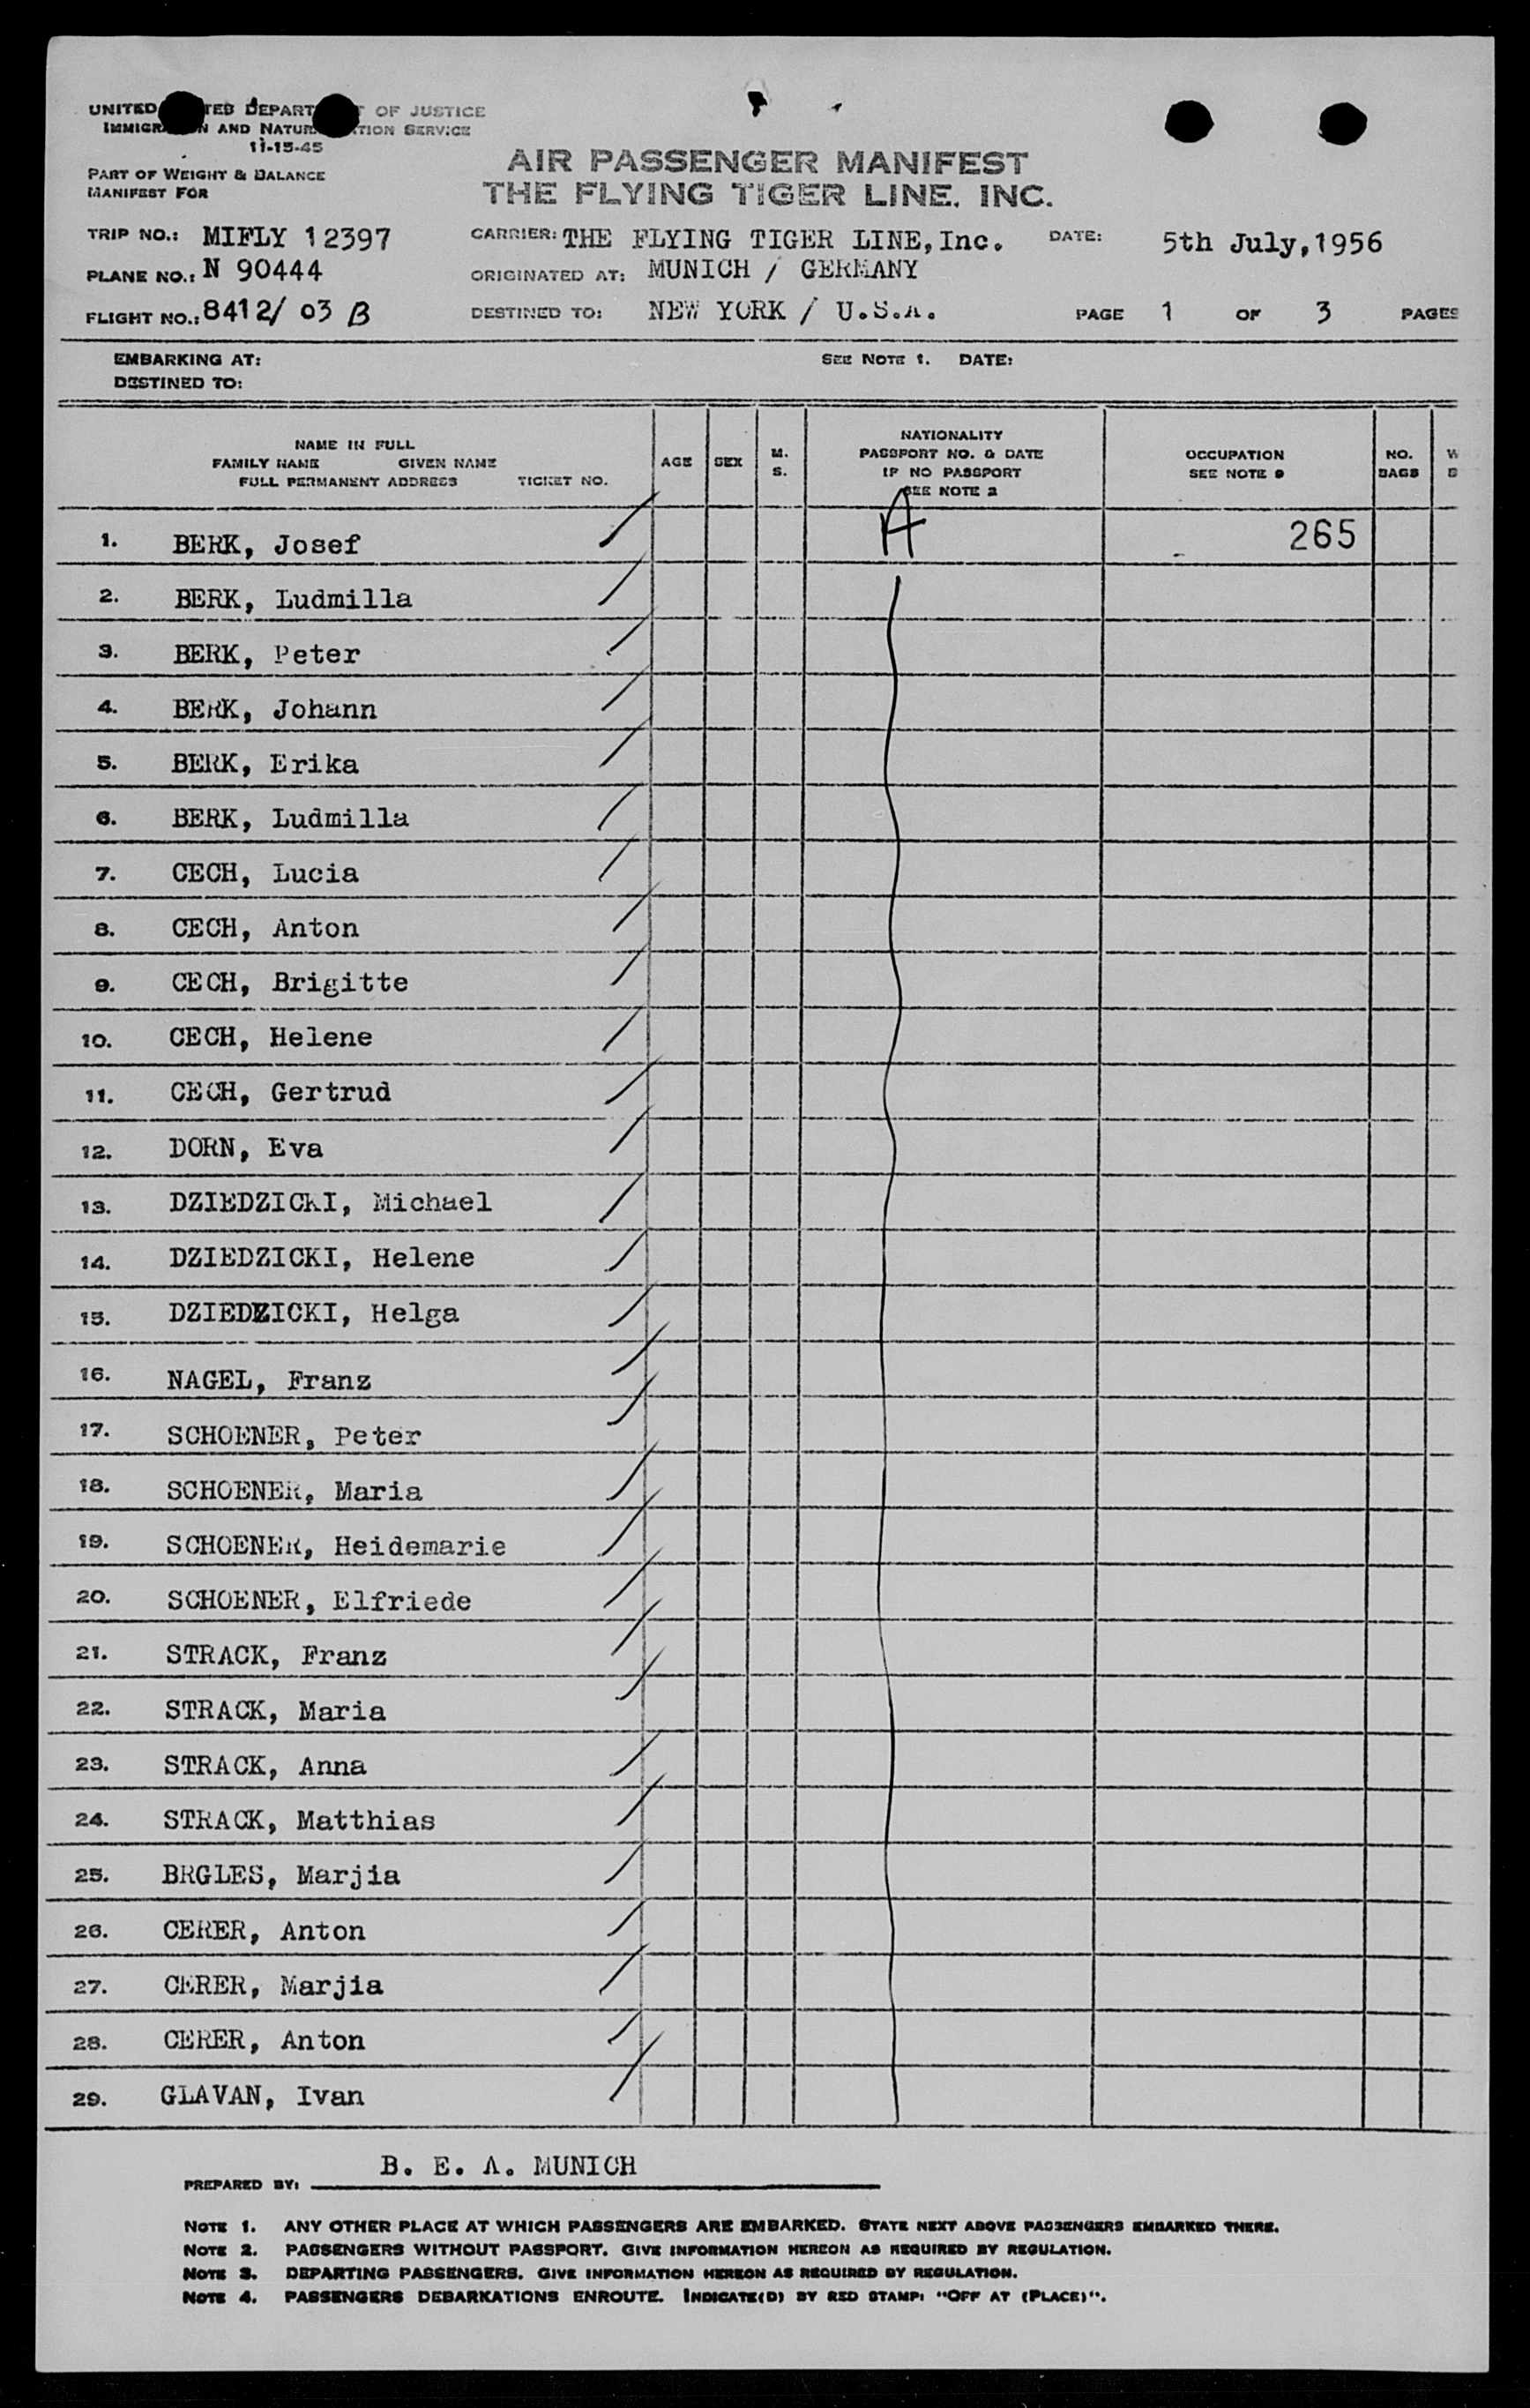 UNITED STATES DEPARTMENT OF JUSTICE
IMMIGRATION AND NATURALIZATION SERVICE
11-15-45
PART OF WEIGHT & BALANCE
MANIFEST FOR
AIR PASSENGER MANIFEST
THE FLYING TIGER LINE, INC.
TRIP NO.: MIFLY 12397 CARRIER: THE FLYING TIGER LINE, Inc. DATE: 5th July, 1956
PLANE NO.: N 90444 ORIGINATED AT: MUNICH / GERMANY
FLIGHT NO.: 8412/ 03 B DESTINED TO: NEW YORK / U.S.A. PAGE 1 OF 3 PAGES
EMBARKING AT: SEE NOTE 1. DATE:
DESTINED TO:
NAME IN FULL
FAMILY NAME GIVEN NAME
FULL PERMANENT ADDRESS TICKET NO.
AGE SEX M. S.
NATIONALITY
PASSPORT NO. & DATE
IF NO PASSPORT
SEE NOTE 2
OCCUPATION
SEE NOTE
NO.
BAGS
1. BERK, Josef A 265
2. BERK, Ludmilla
3. BERK, Peter
4. BERK, Johann
5. BERK, Erika
6. BERK, Ludmilla
7. CECH, Lucia
8. CECH, Anton
9. CECH, Brigitte
10. CECH, Helene
11. CECH, Gertrud
12. DORN, Eva
13. DZIEDZICKI, Michael
14. DZIEDZICKI, Helene
15. DZIEDZICKI, Helga
16. NAGEL, Franz
17. SCHOENER, Peter
18. SCHOENER, Maria
19. SCHOENER, Heidemarie
20. SCHOENER, Elfriede
21. STRACK, Franz
22. STRACK, Maria
23. STRACK, Anna
24. STRACK, Matthias
25. BRGLES, Marjia
26. CERER, Anton
27. CERER, Marjia
28. CERER, Anton
29. GLAVAN, Ivan
PREPARED BY: B. E. A. MUNICH
NOTE 1. ANY OTHER PLACE AT WHICH PASSENGERS ARE EMBARKED. STATE NEXT ABOVE PASSENGERS EMBARKED THERE.
NOTE 2. PASSENGERS WITHOUT PASSPORT. GIVE INFORMATION HEREON AS REQUIRED BY REGULATION.
NOTE 3. DEPARTING PASSENGERS. GIVE INFORMATION HEREON AS REQUIRED BY REGULATION.
NOTE 4. PASSENGERS DEBARKATIONS ENROUTE. INDICATE(D) BY RED STAMP: "OFF AT (PLACE)".